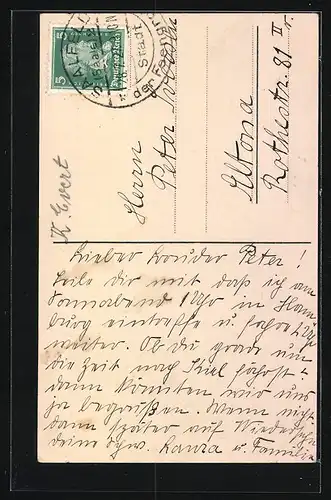 5 Deutsches Reich 5
SAALFELD
Herrn
Peter
Altona
Rothestr. 81 II r.
K. Evert
Lieber Bruder Peter!
Teile dir mit daß ich am
Sonnabend 1 Uhr in Ham
burg eintreffe u. fahre 4 Uhr
weiter. Ob du grade um
die Zeit nach Kiel fährst
dann könnten wir uns
ja begrüßen. Wenn nicht
dann später auf Wiedersehn
deine Schw. Laura u. Familie